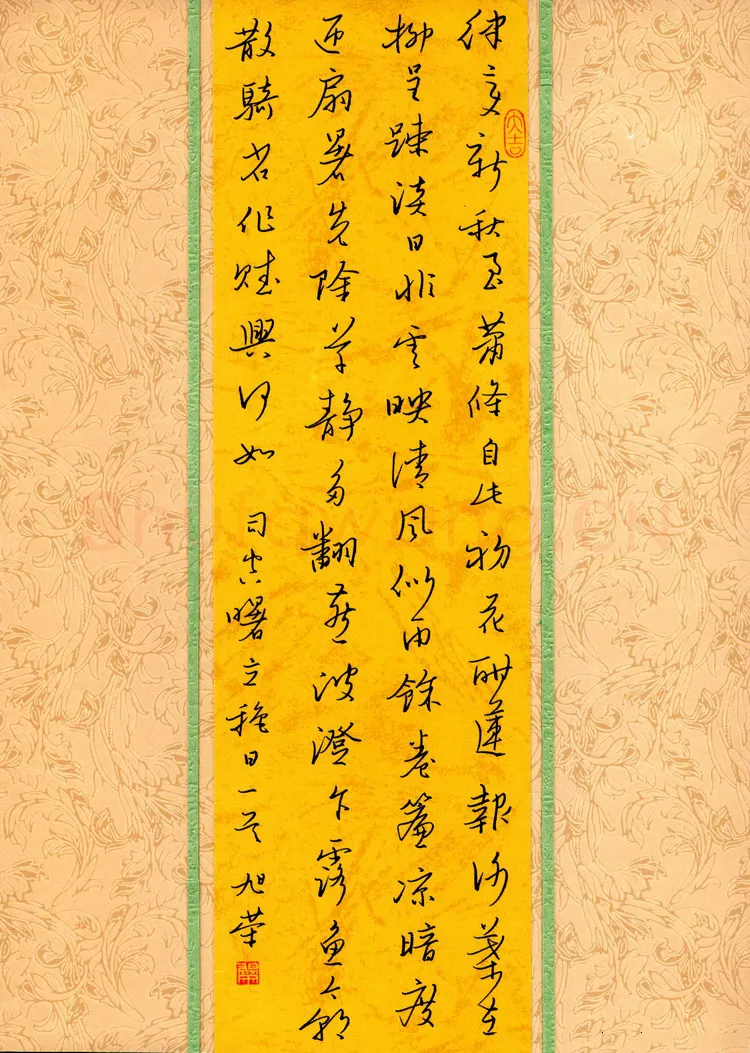 律变新秋至蕭條自此初花酣蓮報谢葉在
柳呈踈淡日非雲映清风似雨餘卷簾凉暗度
迎扇暑先除草静多翻燕波澄乍露鱼今朝
散騎省作赋興何如 司空曙立秋日一首 旭荣
大吉